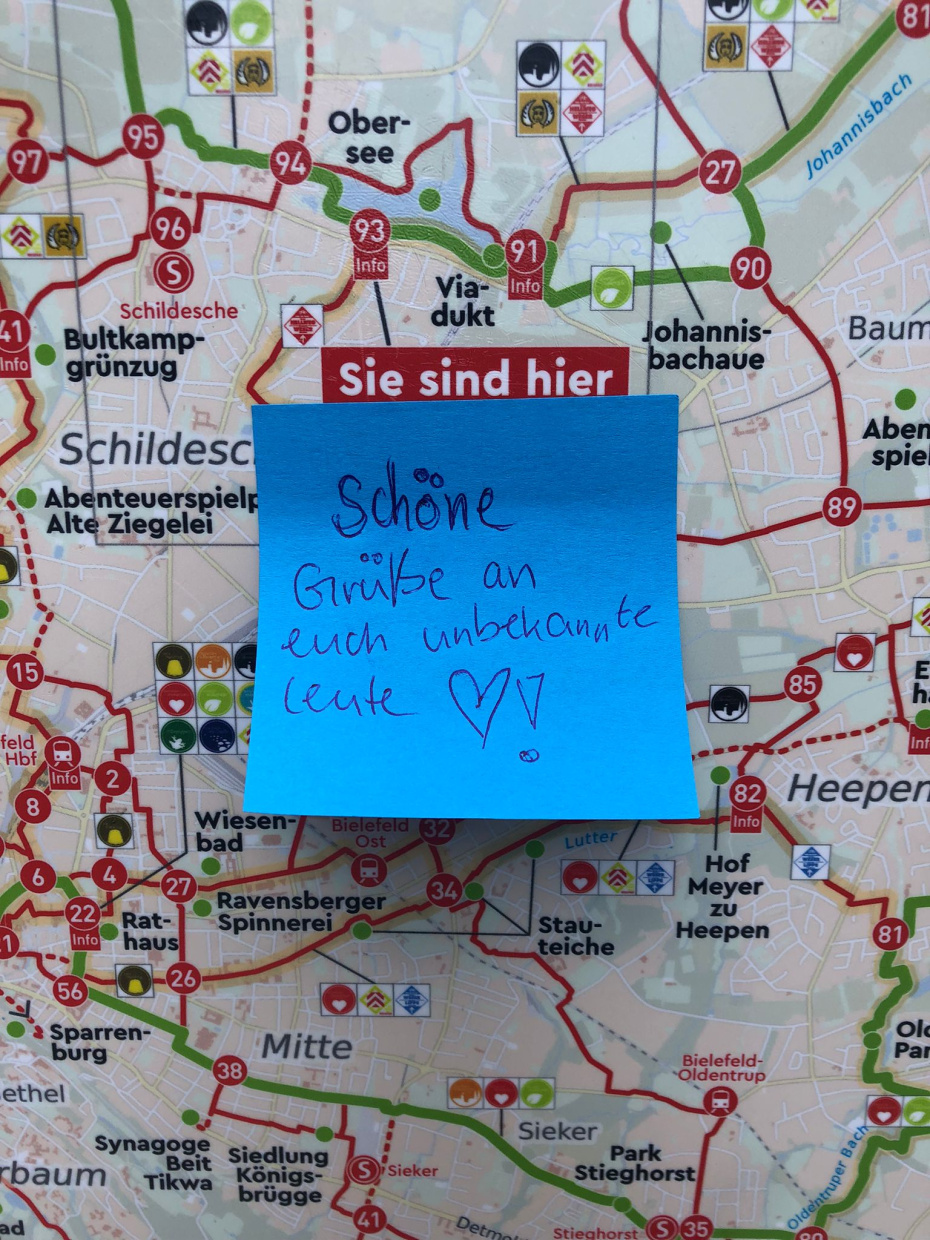 81
Johannisbach
95
97
94
Ober-
see
27
96
93
Info
91
Info
90
S
Schildesche
Via-
dukt
41
Info
Bultkamp-
grünzug
Johannis-
bachaue
Baum
Sie sind hier
Aben
spiel
Schildesc
Abenteuerspielp
Alte Ziegelei
89
Schöne
Grüße an
euch unbekannte
Leute ♡!
15
85
feld
Hbf
Info
2
82
Info
Heepen
8
Wiesen-
bad
Bielefeld
Ost
32
Lutter
6
4
27
34
Hof
Meyer
zu
Heepen
22
Info
Rat-
haus
Ravensberger
Spinnerei
Stau-
teiche
81
26
56
Sparren-
burg
Mitte
38
Bielefeld-
Oldentrup
ethel
Sieker
Synagoge
Beit
Tikwa
Siedlung
Königs-
brügge
Park
Stieghorst
S
Sieker
rbaum
Oldentruper Bach
41
Detmo
Stieghorst
S
35